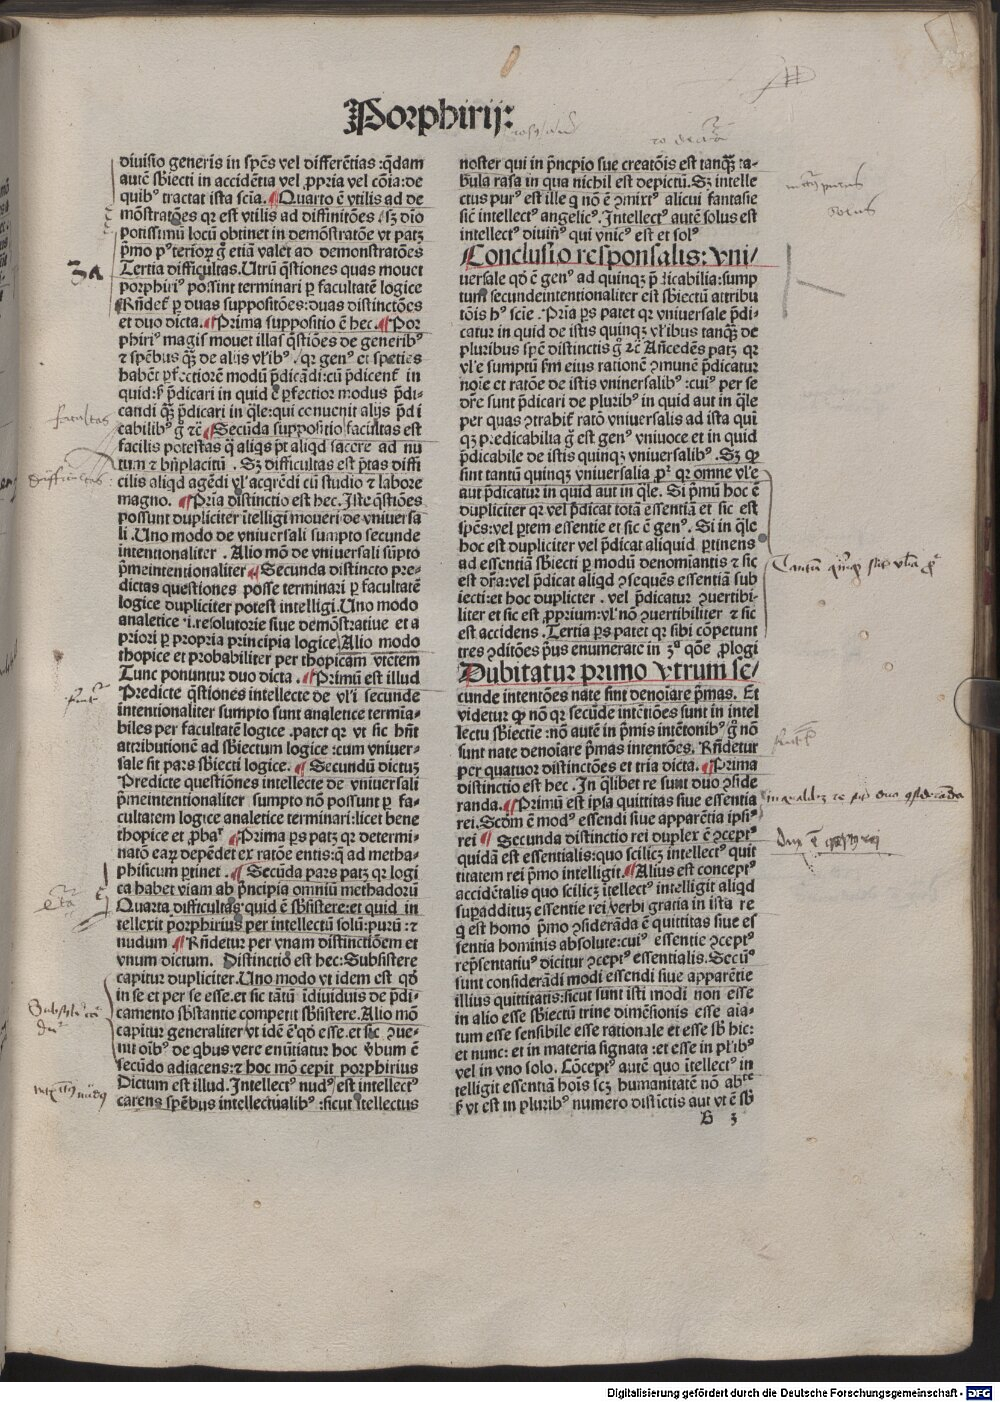 Porphirij:
diuisio generis in spēs vel differētias :q̄dam
autē sbiecti in accidētia vel ꝓpria vel cōia:de
quibꝰ tractat ista scīa. ¶Quarto ē vtilis ad de
mōstratōes qꝛ est vtilis ad diffinitōes
potissimū locū obtinet in demōstratōe vt patꝫ
p̄mo pꝰterioꝝ g̊ etiā valet ad demonstratōes
3a
Tertia difficultas.Utrū q̄stiones quas mouet
porphiriꝰ possint terminari ꝑ facultatē logice
Rñdet᷑ ꝑ duas suppositōes:duas distinctōes
et duo dicta.¶Prima suppositio ē hec.¶Por
phiriꝰ magis mouet illas q̄stiōes de generibꝰ
⁊ spēbus qꝫ̄ de alijs vl̄ibꝰ .qꝛ genꝰ et species
habēt ꝑfectiorē modū p̄dicādi:cū p̄dicent᷑ in
quid: p̄dicari in quid ē ꝑfectior modus p̄di-
candi qꝫ̄ p̄dicari in q̄le:qui conuenit alijs p̄di
cabilibꝰ g̊ ⁊c̄ ¶Secūda suppositio facultas est
facultas
facilis potestas q̄ aliqs pt̄ aliqd facere ad nu
tum ⁊ bn̄placitū . Sꝫ difficultas est ptās diffi
difficultas
cilis aliqd agēdi vl̓ acq̄rēdi cū studio ⁊ labore
magno. ¶Pria distinctio est hec.Iste q̄stiōes
possunt dupliciter ītelligi moueri de vniuersa
li .Uno modo de vniuersali sumpto secunde
intentionaliter . Alio mō de vniuersali sūpto
p̄meintentionaliter ¶Secunda distincto pre-
dictas questiones posse terminari ꝑ facultatē
logice dupliciter potest intelligi.Uno modo
analetice .i.resolutorie siue demōstratiue et a
priori ꝑ propria principia logice.Alio modo
thopice et probabiliter per thopicam vtētem
Tunc ponuntur duo dicta . ¶Primū est illud
Predicte q̄stiones intellecte de vl̓i secunde
intentionaliter sumpto sunt analetice termīa-
biles per facultatē logice .patet qꝛ vt sic hn̄t
attributionē ad sbiectum logice :cum vniuer-
sale sit pars sbiecti logice. ¶ Secundū dictuꝫ
Predicte questiōnes intellecte de vniuersali
p̄meintentionaliter sumpto nō possunt ꝑ fa-
cultatem logice analetice terminari:licet bene
thopice et ꝓbar᷑ ¶Prima ꝑs patꝫ qꝛ determi-
natō eaꝝ depēdet ex ratōe entis:q̄ ad metha-
phisicum ꝑtinet . ¶ Secūda pars patꝫ qꝛ logi
ca habet viam ab p̄ncipia omniū methadorū
Quarta difficultas quid ē sbsistere:et quid in
tellexit porphirius per intellectū solū:purū :⁊
nudum ¶Rñdetur per vnam distinctiōem et
vnum dictum. Distinctio est hec:Subsistere
capitur dupliciter.Uno modo vt idem est qd̓
in se et per se esse.et sic tātū īdiuiduis de p̄di-
camento sbstantie competit sbsistere.Alio mō
capitur generaliter vt idē ē qd̓ esse.et sic ꝯue-
nit oībꝰ de qbus vere enūtiatur hoc ꝟbum ē
secūdo adiacens:⁊ hoc mō cepit porphirius
Dictum est illud.Intellectꝰ nudꝰ est intellectꝰ
carens spēbus intellectualibꝰ :sicut ītellectus
noster qui in p̄ncpio sue creatōis est tanqꝫ̄ ta-
bula rasa in qua nichil est depictū.Sꝫ intelle
ctus purꝰ est ille q nō ē ꝯmixtꝰ alicui fantasie
purus
sic̄ intellectꝰ angelicꝰ. Intellectꝰ autē solus est
intellectꝰ diuinꝰ qui vnicꝰ est et solꝰ
Conclusio responsalis: vni/
uersale qd̓ ē genꝰ ad quinqꝫ p̄dicabilia:sump
tum secundeintentionaliter est sbiectū attribu
tōis hꝰ scie .Pria ꝑs patet qꝛ vniuersale p̄di-
catur in quid de istis quinqꝫ vl̓ibus tanqꝫ̄ de
pluribus spē distinctis g̊ ⁊c̄ Añcedēs patꝫ qꝛ
vl̓e sumptū sm̄ eius rationē ꝯmunē p̄dicatur
noīe et ratōe de istis vniuersalibꝰ :cuiꝰ per se
dr̄e sunt p̄dicari de pluribꝰ in quid aut in q̄le
per quas ꝯtrahit᷑ ratō vniuersalis ad ista qui
qꝫ predicabilia g̊ est genꝰ vniuoce et in quid
p̄dicabile de istis quinqꝫ vniuersalibꝰ. Sꝫ ꝙ
sint tantū quinqꝫ vniuersalia pꝫ qꝛ omne vl̓e
aut p̄dicatur in quid aut in q̄le. Si p̄mū hoc ē
dupliciter qꝛ vel p̄dicat totā essentiā et sic est
spēs:vel ꝑtem essentie et sic ē genꝰ. Si in q̄le
hoc est dupliciter vel p̄dicat aliquid ꝑtinens
ad essentiā sbiecti ꝑ modū denomiantis ⁊ sic
est dr̄a:vel p̄dicat aliqd ꝯsequēs essentiā sub
iecti:et hoc dupliciter . vel p̄dicatur ꝯuertibi-
liter et sic est ꝓprium:vl̓ nō ꝯuertibiliter ⁊ sic
est accidens .Tertia ꝑs patet qꝛ sibi cōpetunt
tres ꝯditōes pꝰus enumerate in 3ᵃ qōe ꝓlogi
Dubitatur primo vtrum se/
cunde intentōes nate sint denoīare p̄mas. Et
videtur ꝙ nō qꝛ secūde intētiōes sunt in intel
lectu sbiectie :nō autē in p̄mis intētonibꝰ g̊ nō
sunt nate denoīare p̄mas intentōes. Rñdetur
per quatuor distinctōes et tria dicta.¶Prima
distinctio est hec. In q̄libet re sunt duo ꝯside
randa.¶Primū est ipsa quittitas siue essentia
rei.Scd̓m ē modꝰ essendi siue apparētia ipsiꝰ
rei ¶ Secunda distinctio rei duplex ē ꝯceptꝰ
quidā est essentialis:quo scilicꝫ intellectꝰ quit
titatem rei p̄mo intelligit.¶Alius est conceptꝰ
accidētalis quo scilicꝫ ītellectꝰ intelligit aliqd
suꝑadditūꝫ essentie rei verbi gratia in ista re
q est homo p̄mo ꝯsiderāda ē quittitas siue es
sentia hominis absolute:cuiꝰ essentie ꝯceptꝰ
rep̄sentatiuꝰ dicitur ꝯceptꝰ essentialis.Secūꝰ
sunt considerādi modi essendi siue apparētie
illius quittitatis:sicut sunt isti modi non esse
in alio esse sbiectū trine dimēsionis esse aīa-
tum esse sensibile esse rationale et esse sb hic:
et nunc: et in materia signata :et esse in pl̓ibꝰ
vel in vno solo. Cōceptꝰ autē quo ītellectꝰ in
telligit essentiā hoīs scꝫ humanitatē nō
vt est in pluribꝰ numero distīctis aut vt ē sb
B 3
Digitalisierung gefördert durch die Deutsche Forschungsgemeinschaft - DFG